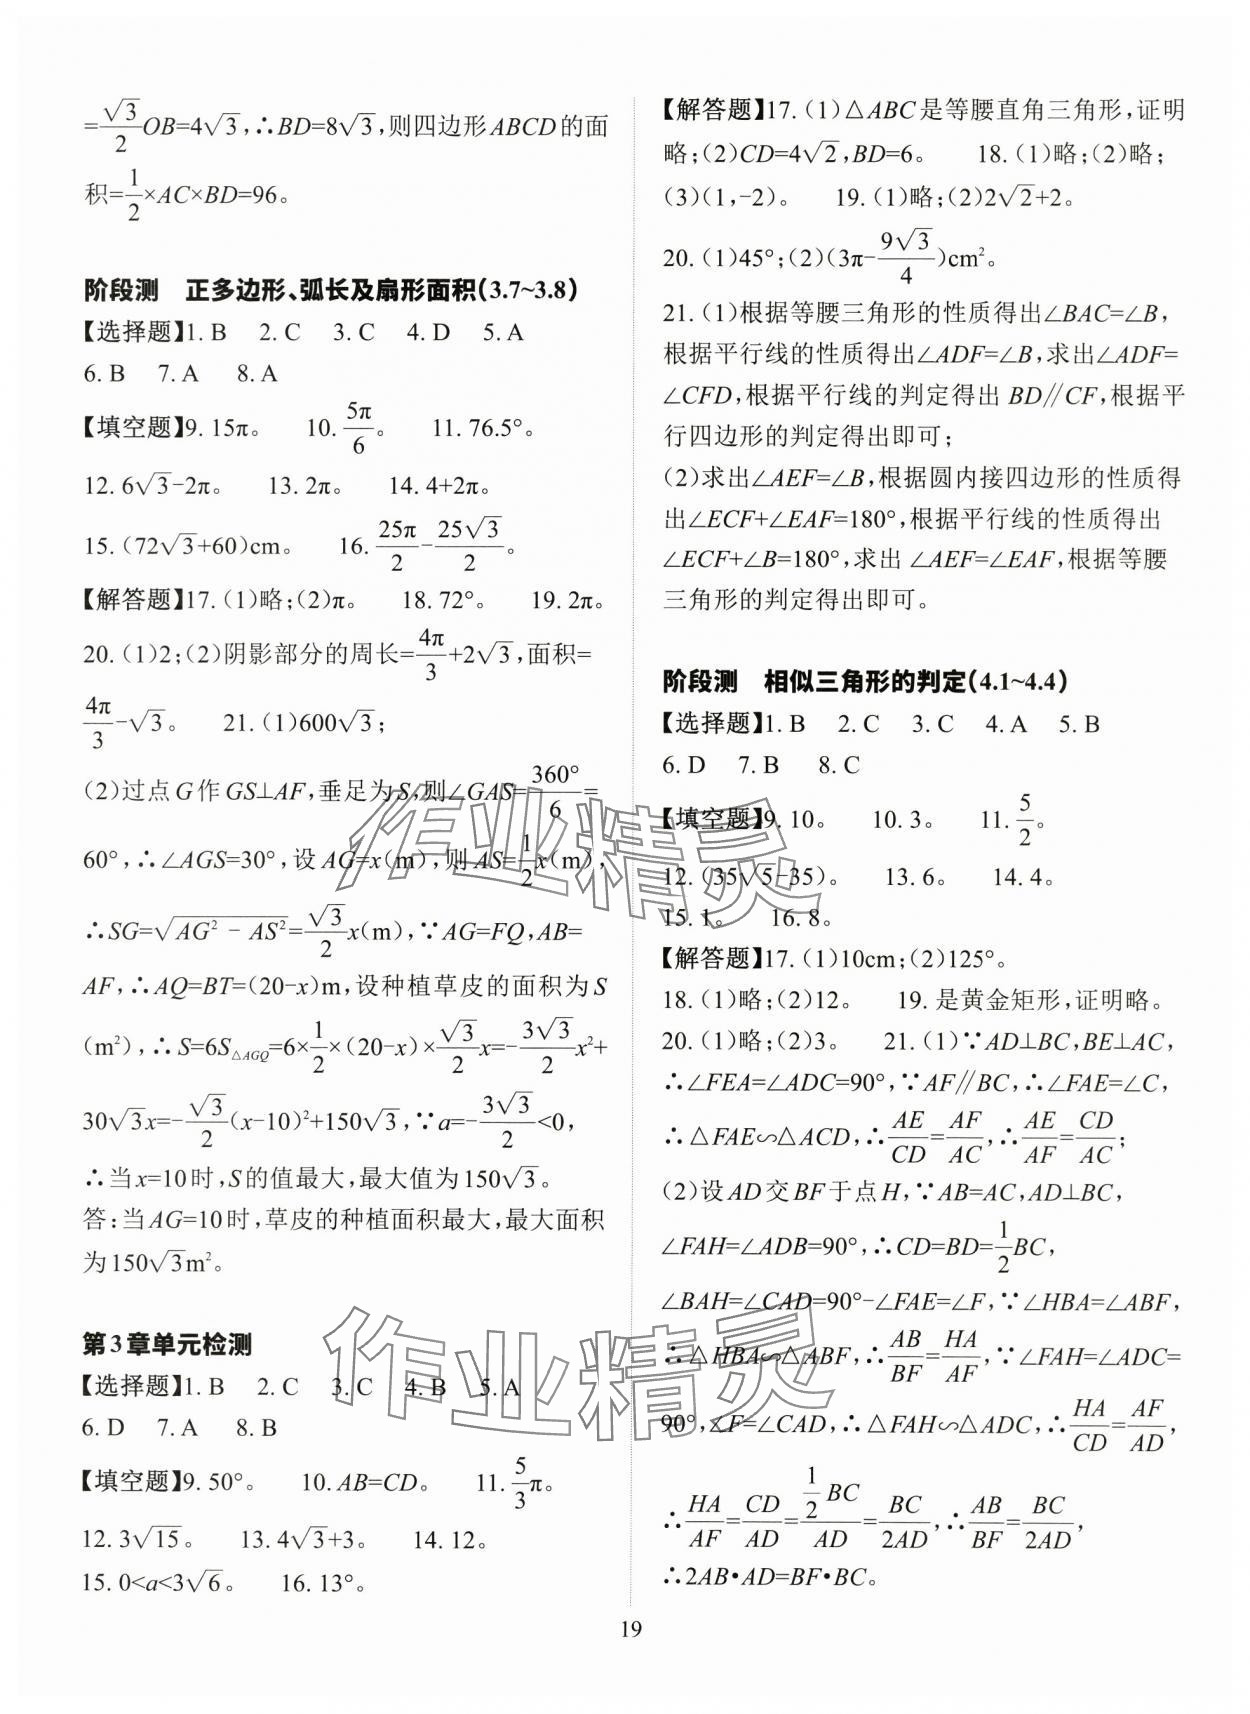 =√3/2 OB=4√3,∴BD=8√3,则四边形ABCD的面
积=1/2×AC×BD=96。
阶段测　正多边形、弧长及扇形面积(3.7~3.8)
【选择题】1. B　2. C　3. C　4. D　5. A
6. B　7. A　8. A
【填空题】9. 15π。　10. 5π/6。　11. 76.5°。
12. 6√3-2π。　13. 2π。　14. 4+2π。
15. (72√3+60)cm。　16. 25π/2-25√3/2。
【解答题】17. (1)略;(2)π。　18. 72°。　19. 2π。
20. (1)2;(2)阴影部分的周长=4π/3+2√3,面积=
4π/3-√3。　21. (1)600√3;
(2)过点G作GS⊥AF,垂足为S,则∠GAS=360°/6=
60°,∴∠AGS=30°,设AG=x(m),则AS=1/2x(m),
∴SG=√(AG²-AS²)=√3/2x(m),∵AG=FQ,AB=
AF,∴AQ=BT=(20-x)m,设种植草皮的面积为S
(m²),∴S=6S△AGQ=6×1/2×(20-x)×√3/2x=-3√3/2x²+
30√3x=-√3/2(x-10)²+150√3,∵a=-3√3/2<0,
∴当x=10时,S的值最大,最大值为150√3。
答:当AG=10时,草皮的种植面积最大,最大面积
为150√3m²。
第3章单元检测
【选择题】1. B　2. C　3. C　4. B　5. A
6. D　7. A　8. B
【填空题】9. 50°。　10. AB=CD。　11. 5/3π。
12. 3√15。　13. 4√3+3。　14. 12。
15. 0<a<3√6。　16. 13°。
【解答题】17. (1)△ABC是等腰直角三角形,证明
略;(2)CD=4√2,BD=6。　18. (1)略;(2)略;
(3)(1,-2)。　19. (1)略;(2)2√2+2。
20. (1)45°;(2)(3π-9√3/4)cm²。
21. (1)根据等腰三角形的性质得出∠BAC=∠B,
根据平行线的性质得出∠ADF=∠B,求出∠ADF=
∠CFD,根据平行线的判定得出BD∥CF,根据平
行四边形的判定得出即可;
(2)求出∠AEF=∠B,根据圆内接四边形的性质得
出∠ECF+∠EAF=180°,根据平行线的性质得出
∠ECF+∠B=180°,求出∠AEF=∠EAF,根据等腰
三角形的判定得出即可。
阶段测　相似三角形的判定(4.1~4.4)
【选择题】1. B　2. C　3. C　4. A　5. B
6. D　7. B　8. C
【填空题】9. 10。　10. 3。　11. 5/2。
12. (35√5-35)。　13. 6。　14. 4。
15. 1。　16. 8。
【解答题】17. (1)10cm;(2)125°。
18. (1)略;(2)12。　19. 是黄金矩形,证明略。
20. (1)略;(2)3。　21. (1)∵AD⊥BC,BE⊥AC,
∴∠FEA=∠ADC=90°,∵AF∥BC,∴∠FAE=∠C,
∴△FAE∽△ACD,∴AE/CD=AF/AC,∴AE/AF=CD/AC;
(2)设AD交BF于点H,∵AB=AC,AD⊥BC,
∠FAH=∠ADB=90°,∴CD=BD=1/2BC,
∠BAH=∠CAD=90°-∠FAE=∠F,∵∠HBA=∠ABF,
∴△HBA∽△ABF,∴AB/BF=HA/AF,∵∠FAH=∠ADC=
90°,∠F=∠CAD,∴△FAH∽△ADC,∴HA/CD=AF/AD,
∴HA/AF=CD/AD=(1/2 BC)/AD=BC/2AD,∴AB/BF=BC/2AD,
∴2AB·AD=BF·BC。
作业精灵
作业精灵
19